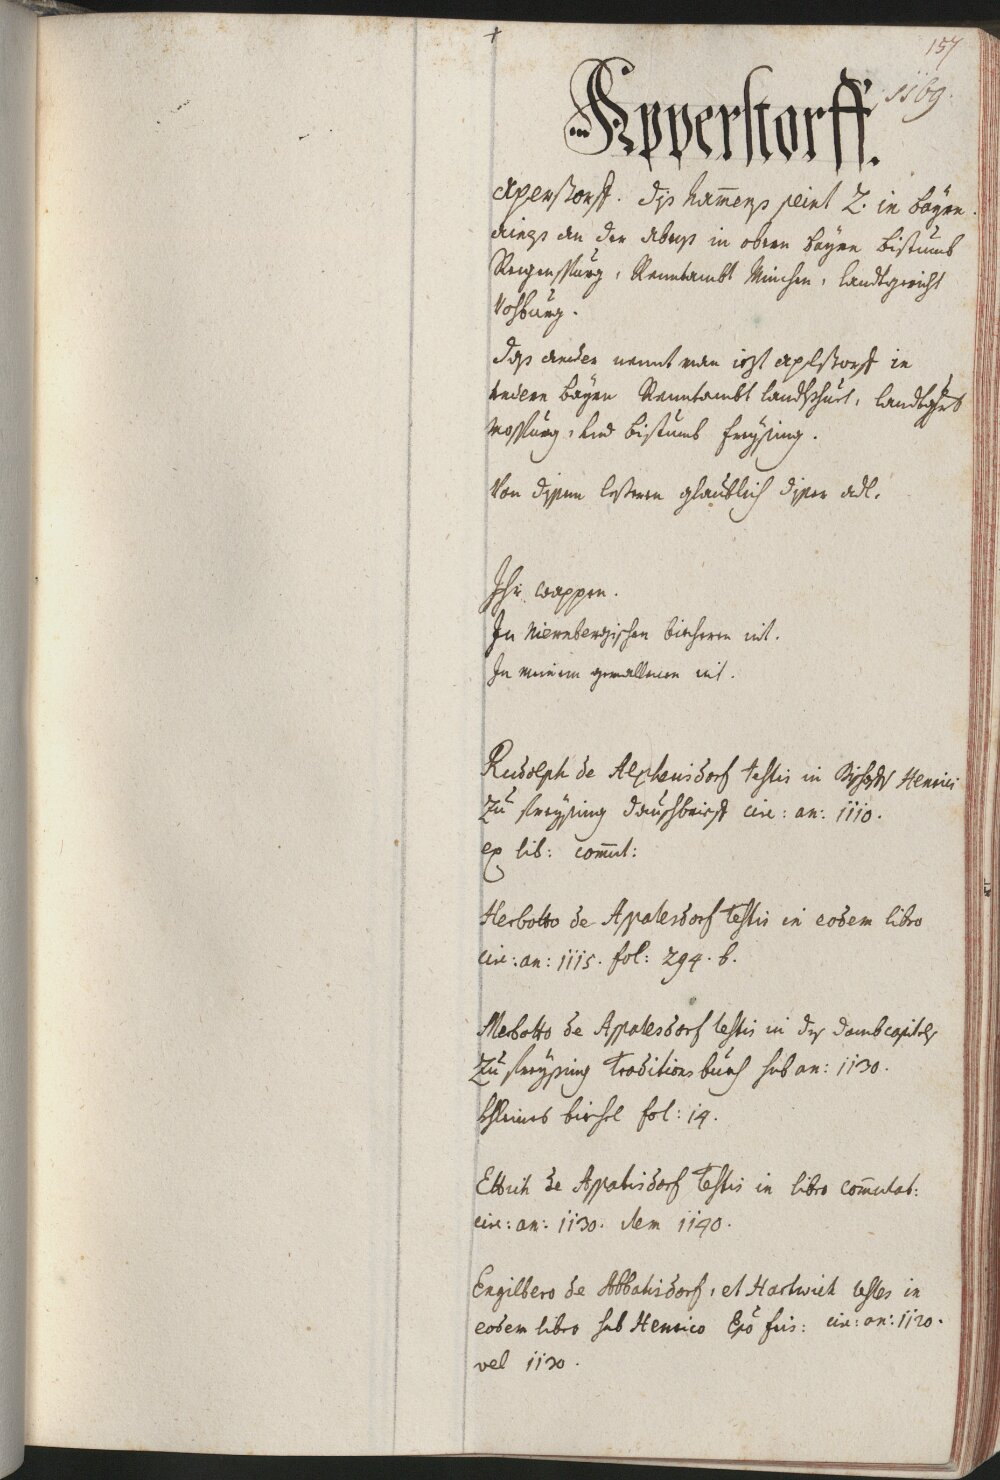 157
1169.
Apperstorff.
Aperstorff. diss Namens seint 2. in Bayrn.
ains an der Abens in obern Bayrn Bistumb
Regenspurg, Renntambt München, Landtgericht
Vohburg.
Das ander nennt man izt Aplstorff in
undern Bayrn Renntambt Landtshuet, Landtgricht
Mospurg, und Bistumb Freysing.
Von disem lestern glaublich diser adl.
Ihr wappen.
In Niernbergischen biechern nit.
In meinem gemalltnen nit.
Rudolph de Alphensdorf testis in Bischof Henrici
zu Freysing dauschbrieff circ: an: 1110.
ex lib: comut:
Herbotto de Appalesdorf testis in eodem libro
circ: an: 1115. fol: 294. b.
Merbotto de Appalesdorf testis in des dombcapitls
zu Freysing Traditionsbuch sub an: 1130.
khleines biechl fol: 14.
Ettich de Appalisdorf testis in libro comutat:
circ: an: 1130. Item 1140.
Engilbero de Abbatisdorf, et Hartwich testes in
eodem libro sub Henrico Epo fris: circ: an: 1120.
vel 1130.